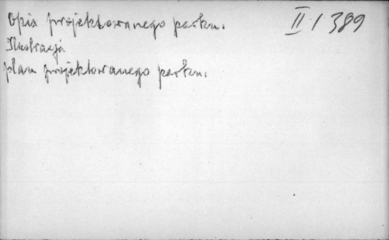 Opis projektowanego parku. II/389
Ilustracja
plan projektowanego parku.